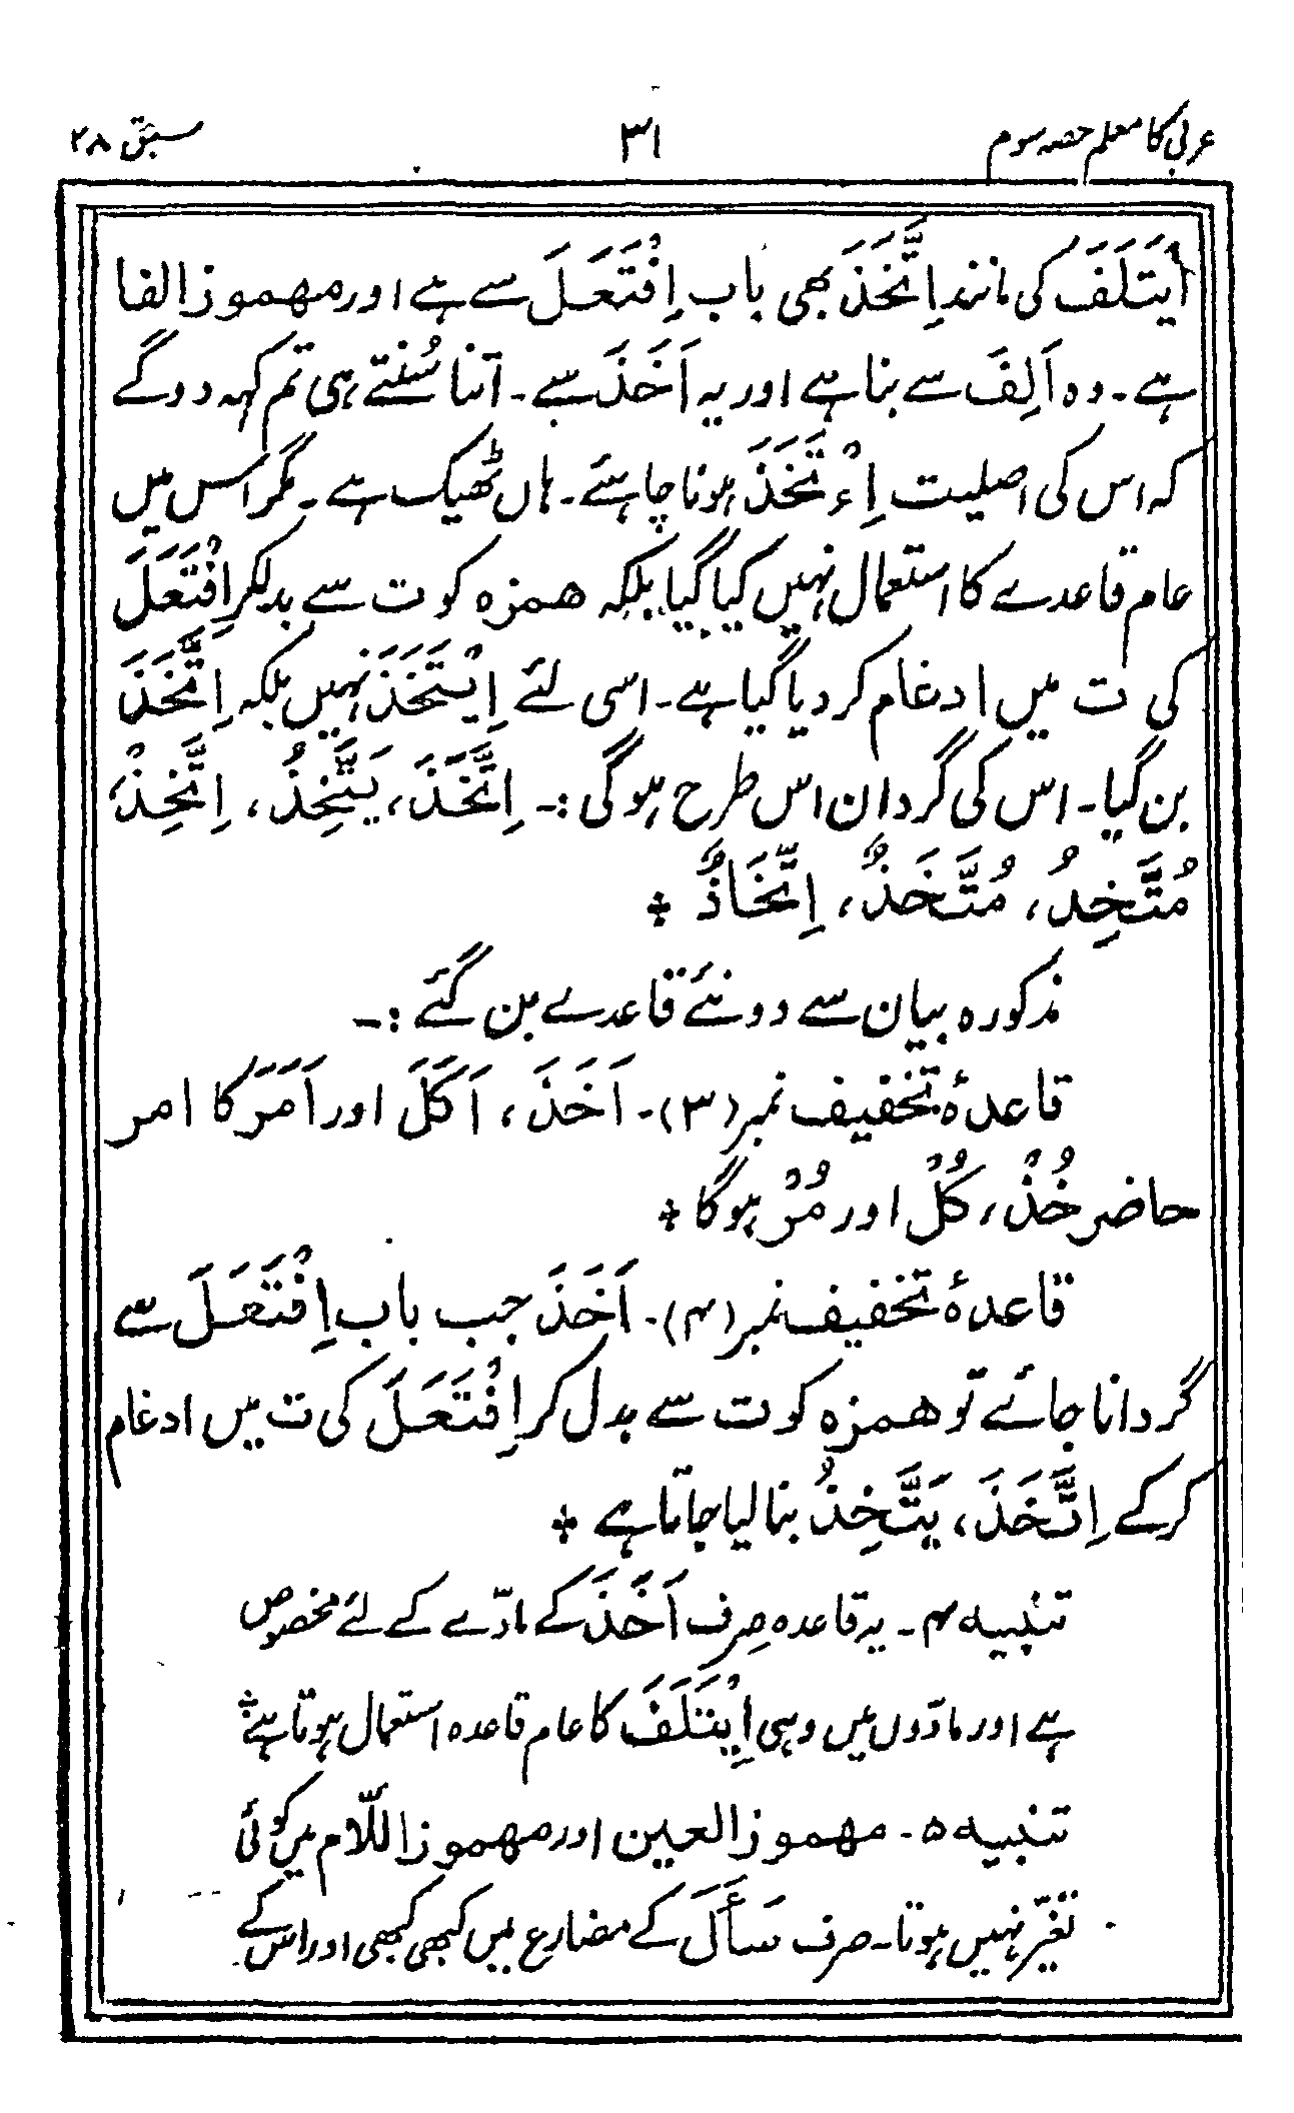 عربی کا معلم حصہ سوم ۳۱ سبق ۲۸
اِیْتَلَفَ کی مانند اِتَّخَذَ بھی باب اِفْتَعَلَ سے ہے اور مہموز الفا
ہے ۔ وہ اَلِفَ سے بنا ہے اور یہ اَخَذَ سے ۔ اتنا سُنتے ہی تم کہہ دو گے
کہ اس کی اصلیت اِءْتَخَذَ ہونا چاہئے ۔ ہاں ٹھیک ہے ۔ مگر اس میں
عام قاعدے کا استعمال نہیں کیا گیا بلکہ ھمزہ کو ت سے بدلکر اِفْتَعَلَ
کی ت میں ادغام کر دیا گیا ہے ۔ اسی لئے اِیْتَخَذَ نہیں بلکہ اِتَّخَذَ
بن گیا ۔ اس کی گردان اس طرح ہوگی :۔ اِتَّخَذَ، یَتَّخِذُ، اِتَّخِذْ،
مُتَّخِذٌ، مُتَّخَذٌ، اِتِّخَاذٌ ÷
مذکورہ بیان سے دو نئے قاعدے بن گئے :۔
قاعدۂ تخفیف نمبر (۳) ۔ اَخَذَ، اَکَلَ اور اَمَرَ کا امر
حاضر خُذْ، کُلْ اور مُرْ ہوگا ÷
قاعدۂ تخفیف نمبر (۴) ۔ اَخَذَ جب باب اِفْتَعَلَ سے
گردانا جائے تو ھمزہ کو ت سے بدل کر اِفْتَعَلَ کی ت میں ادغام
کرکے اِتَّخَذَ، یَتَّخِذُ بنا لیا جاتا ہے ÷
تنبیہ ۴ ۔ یہ قاعدہ صِرف اَخَذَ کے مادّے کے لئے مخصوص
ہے اور مادّوں میں وہی اِیْتَلَفَ کا عام قاعدہ استعمال ہوتا ہے ÷
تنبیہ ۵ ۔ مہموز العین اور مہموز اللّام میں کوئی
تغیّر نہیں ہوتا ۔ صرف سَأَلَ کے مضارع میں کبھی کبھی اور اس کے